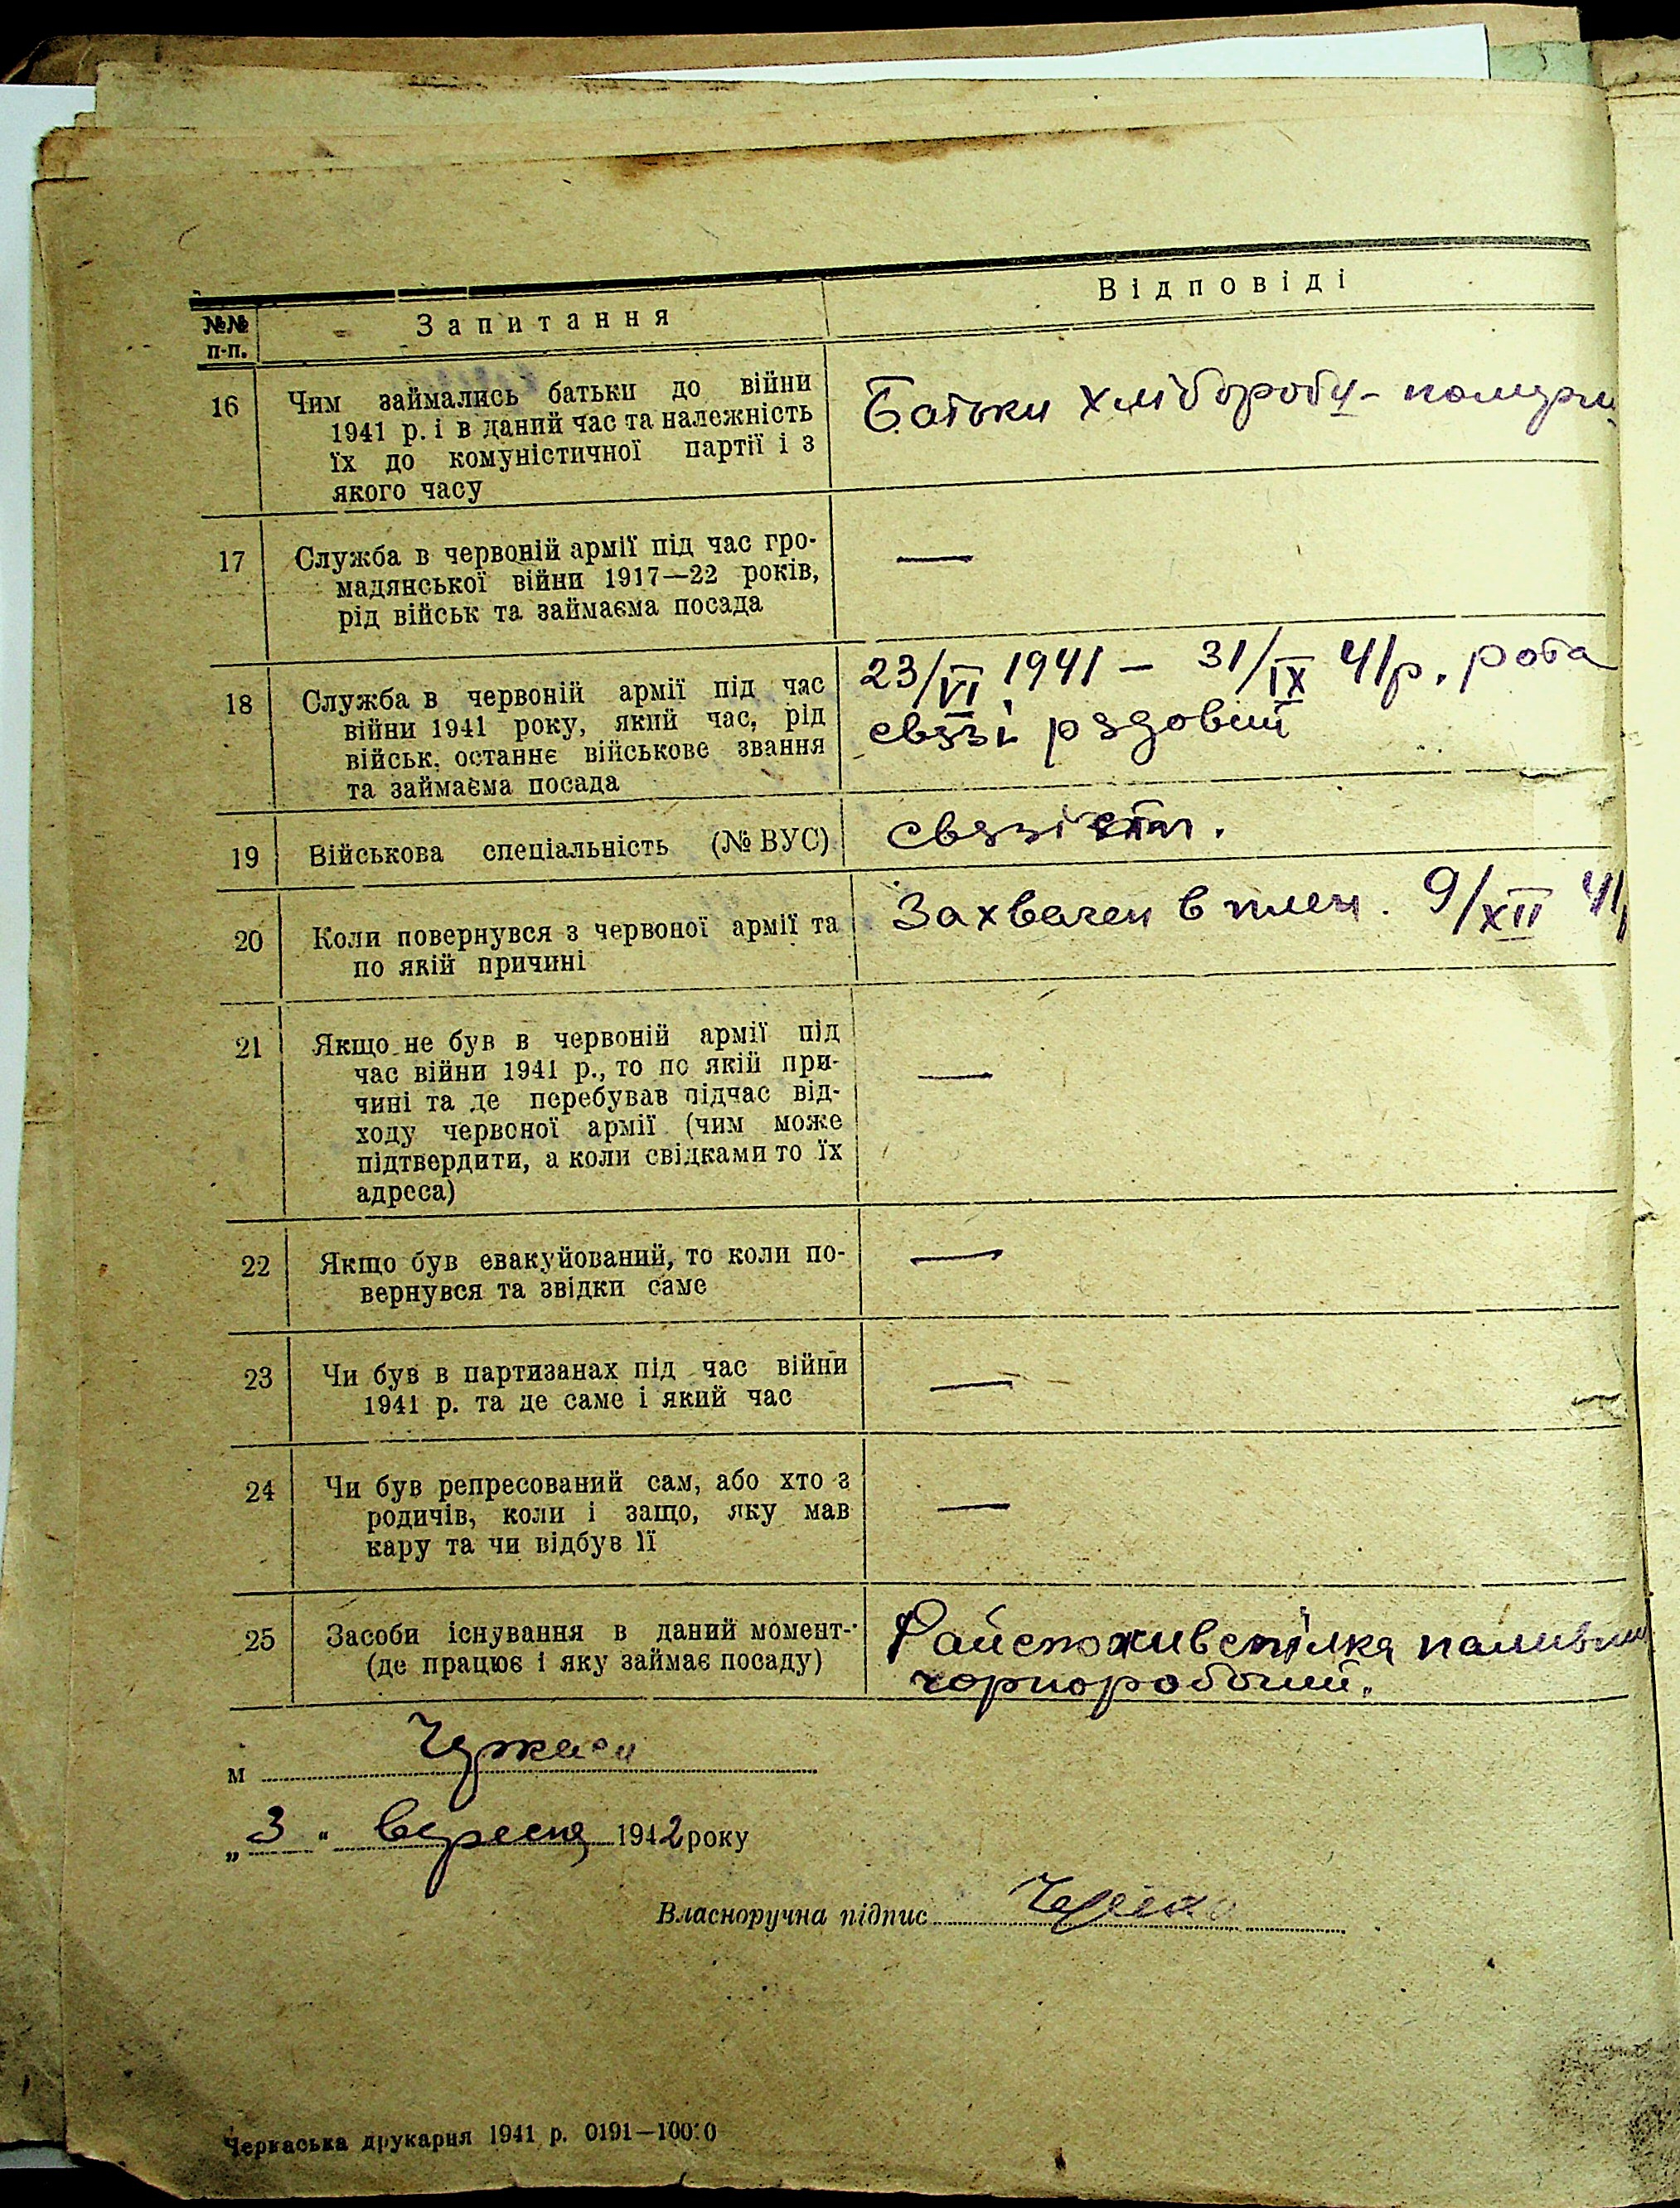 №№ п-п.
Запитання
Відповіді
16
Чим займались батьки до війни
1941 р. і в даний час та належність
їх до комуністичної партії і з
якого часу
Батьки хлібороби - померли
17
Служба в червоній армії під час гро-
мадянської війни 1917—22 років,
рід військ та займаєма посада
—
18
Служба в червоній армії під час
війни 1941 року, який час, рід
військ, останнє військове звання
та займаєма посада
23/VI 1941 — 31/IX 41р. рота
связі рядовий
19
Військова спеціальність (№ ВУС)
20
Коли повернувся з червоної армії та
по якій причині
Захвачен в плен. 9/XII 41
21
Якщо не був в червоній армії під
час війни 1941 р., то по якій при-
чині та де перебував підчас від-
ходу червоної армії (чим може
підтвердити, а коли свідками то їх
адреса)
—
22
Якщо був евакуйований, то коли по-
вернувся та звідки саме
—
23
Чи був в партизанах під час війни
1941 р. та де саме і який час
—
24
Чи був репресований сам, або хто з
родичів, коли і защо, яку мав
кару та чи відбув її
—
25
Засоби існування в даний момент-
(де працює і яку займає посаду)
Райспоживспілка
чорноробочий.
м Черкаси
„3" вересня 1942 року
Власноручна підпис
Черкаська друкарня 1941 р. 0191—10000